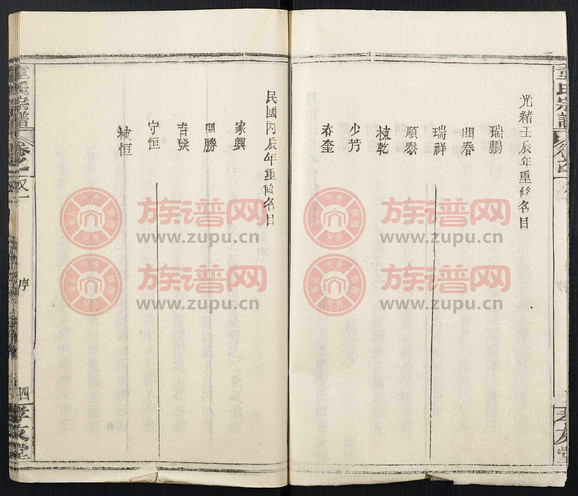 光緒壬辰年重修名目
瑞鵬
開春
瑞祥
順泰
枝乾
少芳
春奎
民國丙辰年重修名目
家興
開勝
吉發
守恒
斌恒
章氏宗譜
卷之
序
四
孝友堂
族谱网
www.zupu.cn
族谱网
www.zupu.cn
族谱网
www.zupu.cn
族谱网
www.zupu.cn